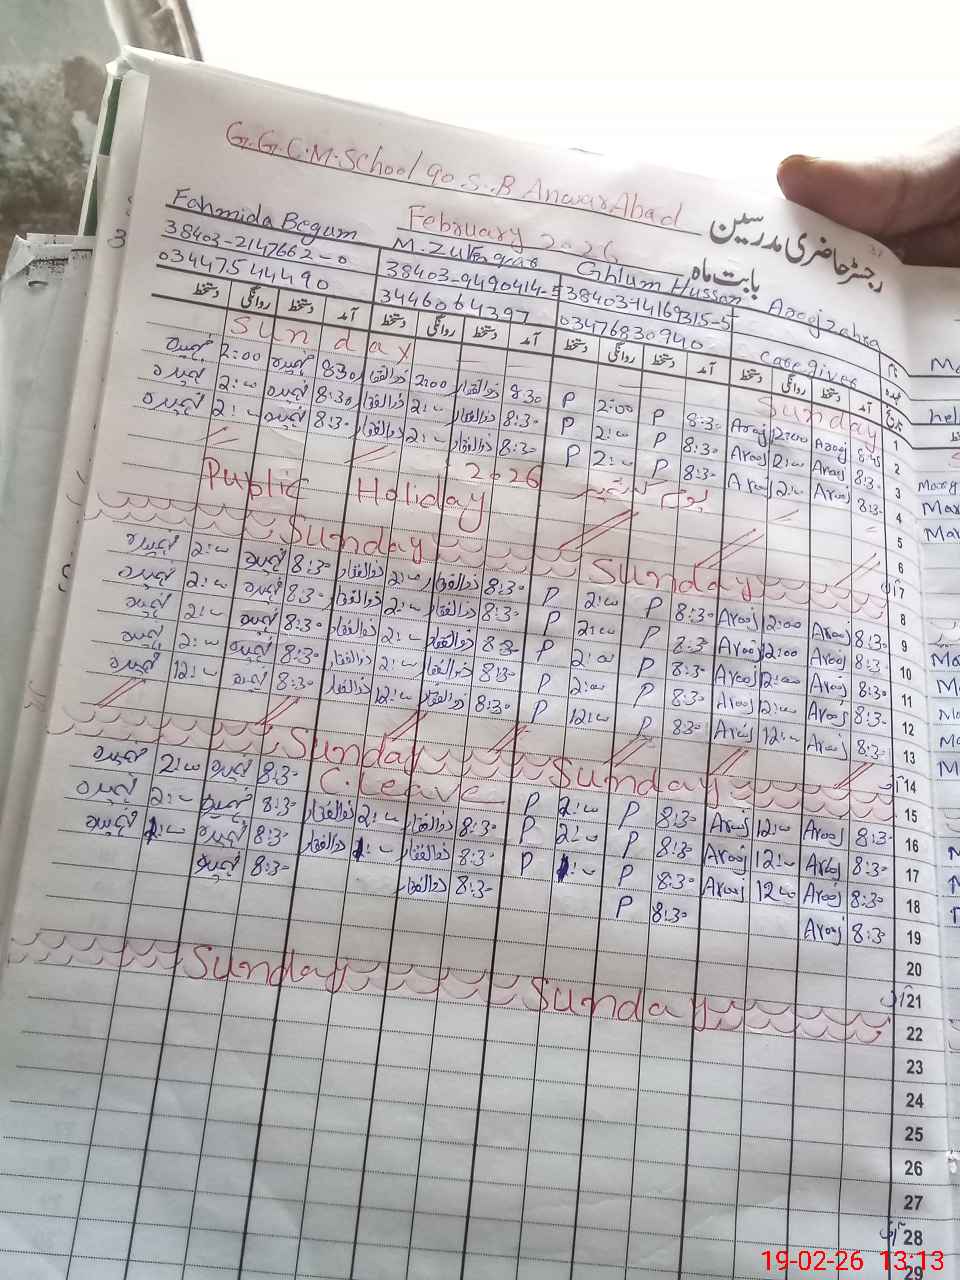 G.G.C.M. School 90 S.B Anwar Abad
رجسٹر حاضری مدرسین
February 2026
بابت ماہ
Fahmida Begum
M. Zulfiqar
Ghlum Hussan
Arooj zahra
38403-2147662-0
38403-9490414-5
38403-14169315-5
Caregiver
03447544490
3446064397
03476830940
دستخط روانگی دستخط آمد دستخط روانگی دستخط آمد دستخط روانگی دستخط آمد دستخط روانگی دستخط آمد
Sunday Sunday 1
فہمیدہ 2:00 فہمیدہ 8:30 ذوالفقار 2:00 ذوالفقار 8:30 P 2:00 P 8:30 Arooj 12:00 Arooj 8:45 2
فہمیدہ 2:00 فہمیدہ 8:30 ذوالفقار 2:00 ذوالفقار 8:30 P 2:00 P 8:30 Arooj 2:00 Arooj 8:30 3
فہمیدہ 2:00 فہمیدہ 8:30 ذوالفقار 2:00 ذوالفقار 8:30 P 2:00 P 8:30 Arooj 2:00 Arooj 8:30 4
Public Holiday 2026 یوم کشمیر 5
6
Sunday Sunday 7
فہمیدہ 2:00 فہمیدہ 8:30 ذوالفقار 2:00 ذوالفقار 8:30 P 2:00 P 8:30 Arooj 12:00 Arooj 8:30 8
فہمیدہ 2:00 فہمیدہ 8:30 ذوالفقار 2:00 ذوالفقار 8:30 P 2:00 P 8:30 Arooj 12:00 Arooj 8:30 9
فہمیدہ 2:00 فہمیدہ 8:30 ذوالفقار 2:00 ذوالفقار 8:30 P 2:00 P 8:30 Arooj 12:00 Arooj 8:30 10
فہمیدہ 2:00 فہمیدہ 8:30 ذوالفقار 2:00 ذوالفقار 8:30 P 2:00 P 8:30 Arooj 12:00 Arooj 8:30 11
فہمیدہ 12:00 فہمیدہ 8:30 ذوالفقار 12:00 ذوالفقار 8:30 P 12:00 P 8:30 Arooj 12:00 Arooj 8:30 12
13
Sunday Sunday 14
فہمیدہ 2:00 فہمیدہ 8:30 C. Leave P 2:00 P 8:30 Arooj 12:00 Arooj 8:30 15
فہمیدہ 2:00 فہمیدہ 8:30 ذوالفقار 2:00 ذوالفقار 8:30 P 2:00 P 8:30 Arooj 12:00 Arooj 8:30 16
فہمیدہ 1:00 فہمیدہ 8:30 ذوالفقار 1:00 ذوالفقار 8:30 P 1:00 P 8:30 Arooj 12:00 Arooj 8:30 17
فہمیدہ 8:30 ذوالفقار 8:30 P 8:30 Arooj 8:30 18
19
20
Sunday Sunday 21
22
23
24
25
26
27
28
29
19-02-26 13:13